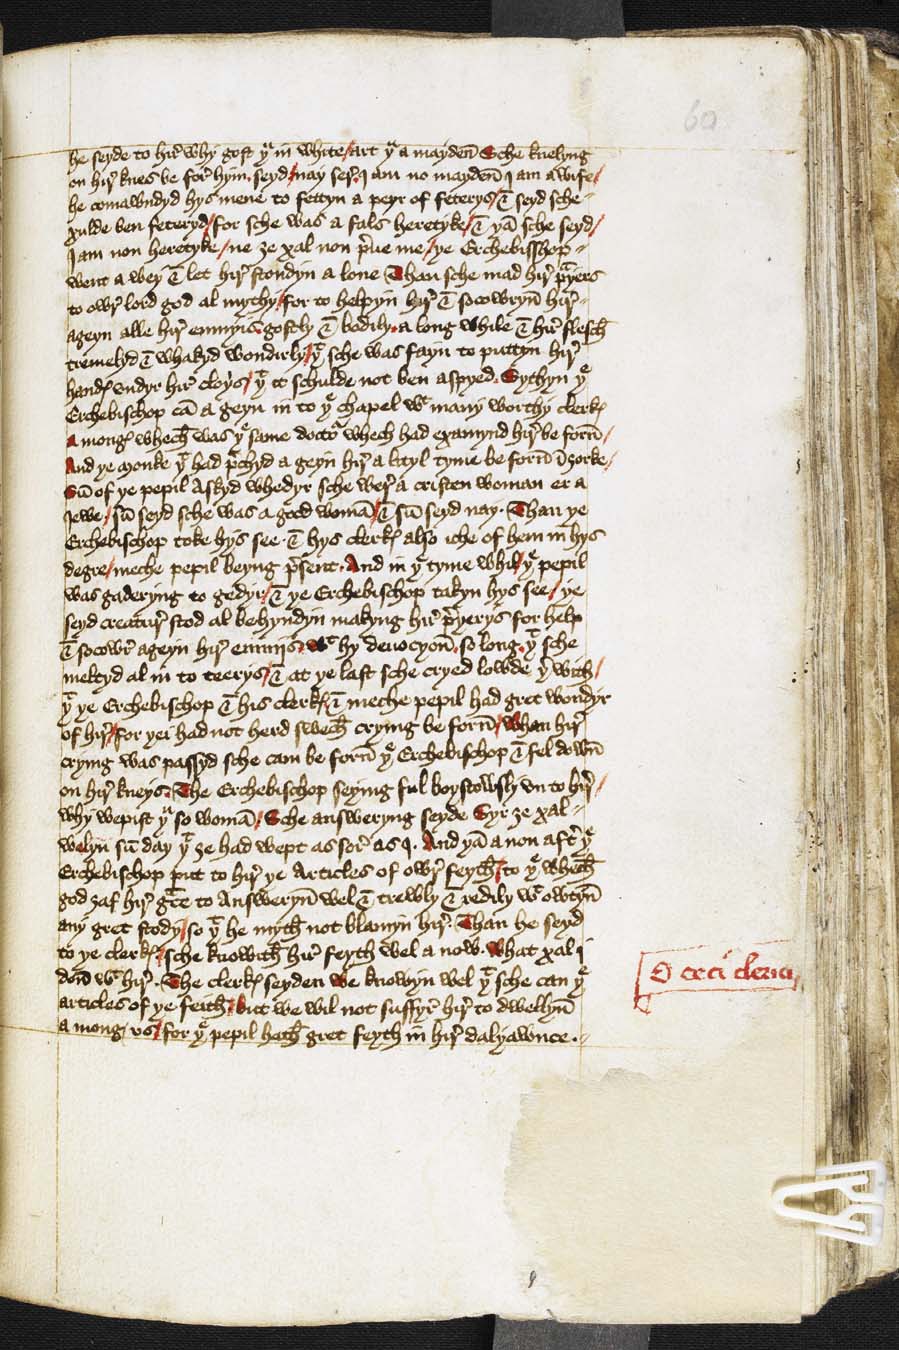 60
he seyde to hir why gost yu in white / art yu a mayden Sche knelyng
on hir knes be for hym. seyd / nay ser. I am no mayden I am a wife /
he comawndyd hys mene to fettyn a peyr of feterys / & seyd sche
xulde ben feteryd / for sche was a fals heretyke / & yan sche seyd /
I am non heretyke / ne ȝe xal non preue me / ye Erchebisshop
went a wey & let hir stondyn a lone Than sche mad hir prayers
to owr lord god al mythy / for to helpyn hir & socowryn hir
ageyn alle hir enmyis gostly & bodily a long while & hir flesch
tremelyd & whakyd wondirly / yt sche was fayn to puttyn hir
handys vndyr hir cloys / yt it schulde not ben aspyed. Sythyn ye
Erchebischop cam a geyn in to ye chapel wt many worthy clerkys
A mongys whech was ye same doctor whech had examynd hir be forn /
And ye monke yt had prechyd a geyn hir a lityl tyme be forn in ȝorke /
Sum of ye pepil askyd whedyr sche wer a cristen woman er a
Jewe / sum seyd sche was a good woman / & sum seyd nay. Than ye
Erchebischop toke hys see. & hys clerkys also iche of hem in hys
degre / meche pepil beyng present. And in ye tyme whil / ye pepil
was gaderyng to gedyr / & ye Erchebischop takyn hys see / ye
seyd creatur stod al behyndyn makyng hir preyerys for help
& socowr ageyn hir enmijs wt hy deuocyon. so long. yt sche
meltyd al in to teerys / & at ye last sche cryed lowde yer with /
yt ye Erchebischop & his clerkys / & meche pepil had gret wondyr
of hir / for yei had not herd swech crying be forn / whan hir
crying was passyd sche cam be forn ye Erchebischop & fel down
on hir kneys. The Erchebischop seying ful boystowsly vn to hir /
why wepist yu so woman / Sche answeryng seyde Syr ȝe xal
welyn sum day yt ȝe had wept as sor as I. And yan a non aftyr ye
Erchebischop put to hir ye Articles of owr feyth / to ye whech
god ȝaf hir grace to answeryn wel & trewly & redily wt owtyn
any gret stody / so yt he myth not blamyn hir. Than he seyd
to ye clerkys / sche knowith hir feyth wel a now. What xal I
don wt hir. The clerkys seyden we knowyn wel yt sche can ye
articles of ye feith / but we wil not suffyr hir to dwellyn
a mong vs / for ye pepil hath gret feyth in hir dalyawnce.
O ceci clerici